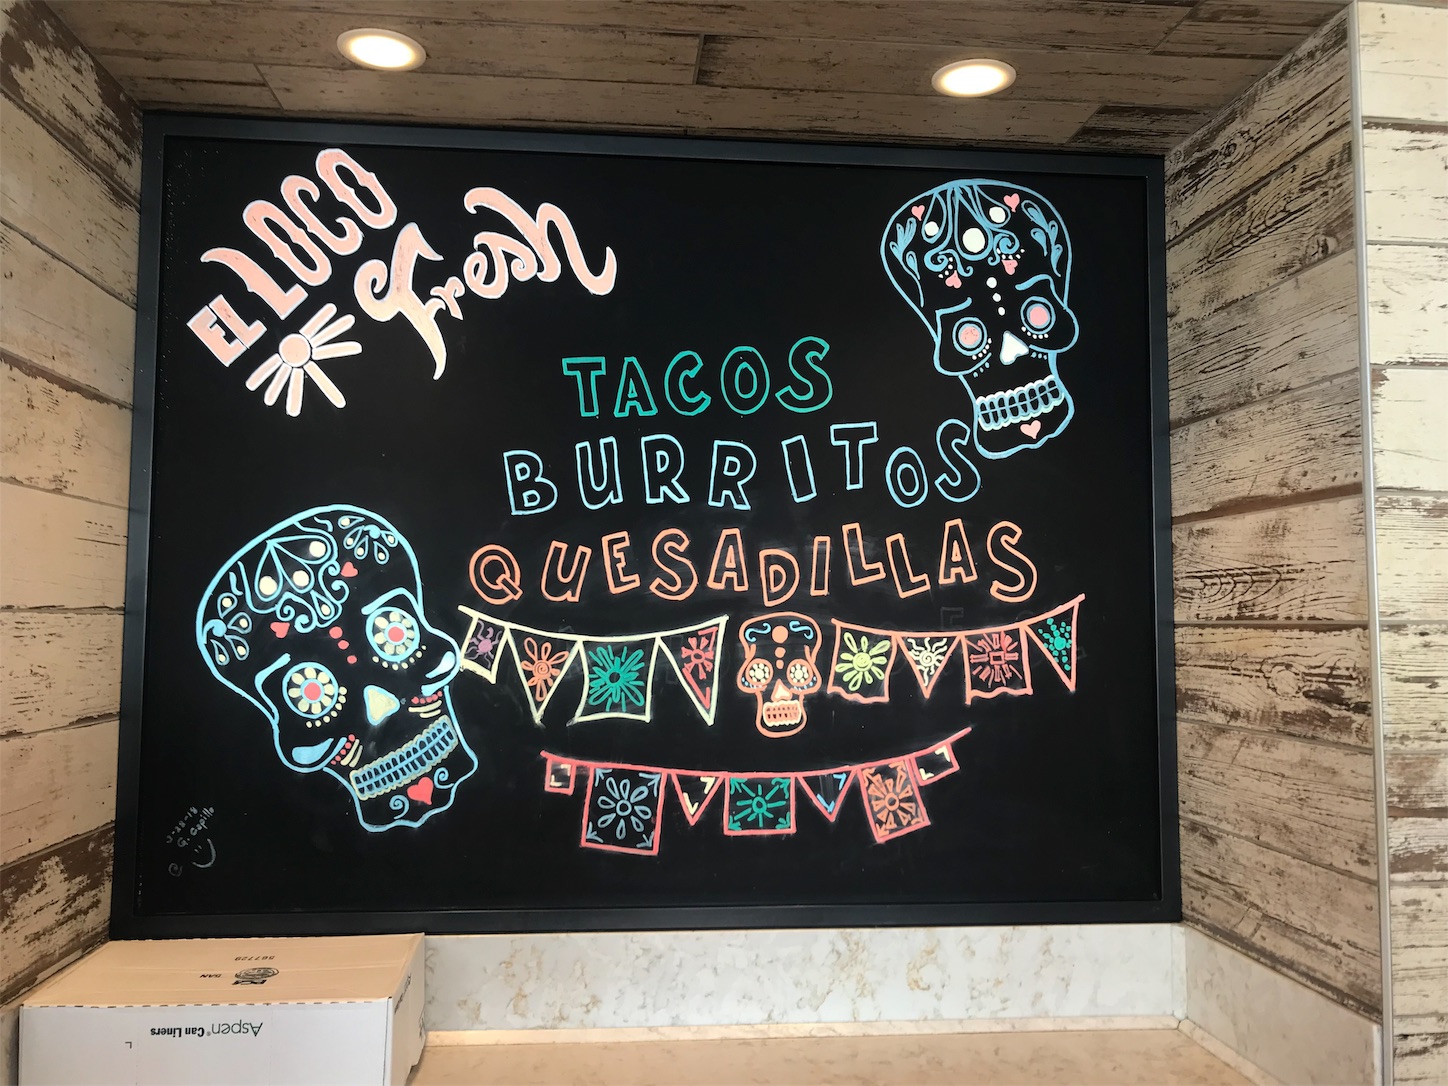 EL LOCO
Fresh
TACOS
BURRITOS
QUESADILLAS
567729
Aspen® Can Liners